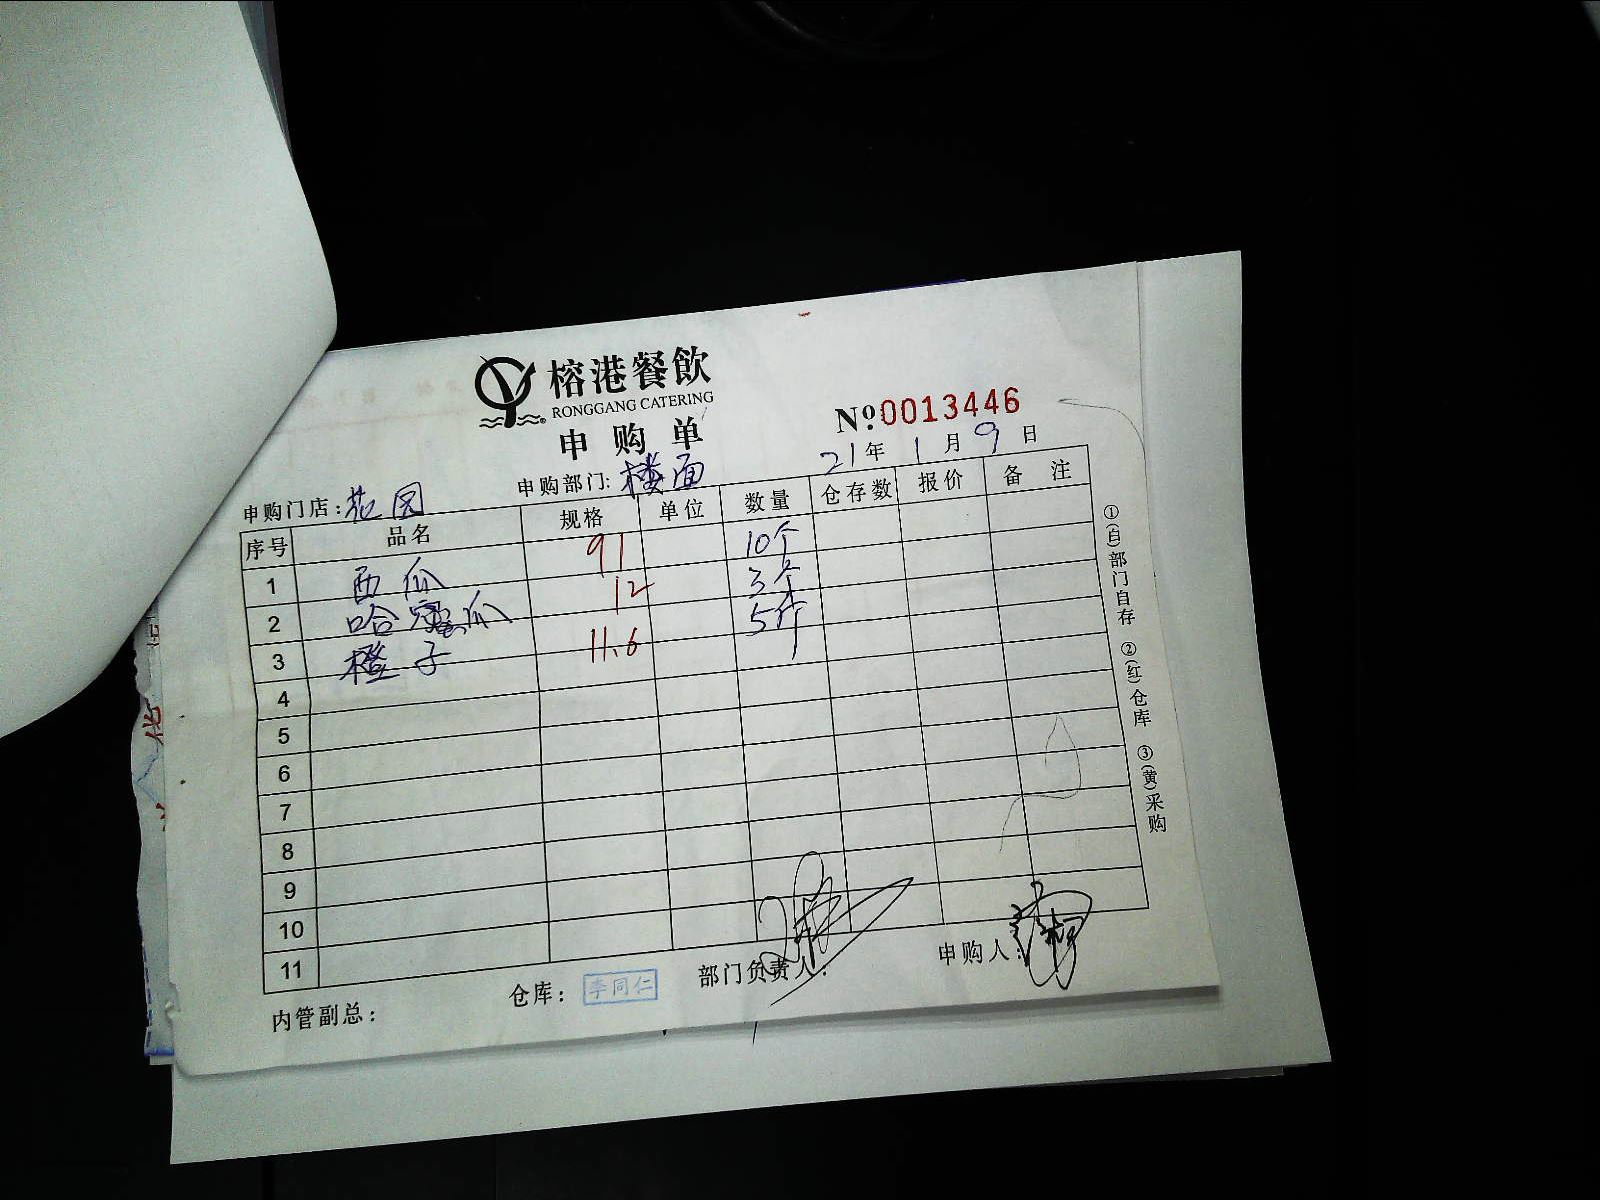 榕港餐飲
RONGGANG CATERING
申购单
No:0013446
21年1月9日
申购门店:花园 申购部门:楼面
序号 品名 规格 单位 数量 仓存数 报价 备注
1 西瓜 91 10个
2 哈密瓜 12 3个
3 橙子 11.6 5斤
4
5
6
7
8
9
10
11
内管副总: 仓库: 李同仁 部门负责人: 申购人:
①(白)部门自存 ②(红)仓库 ③(黄)采购